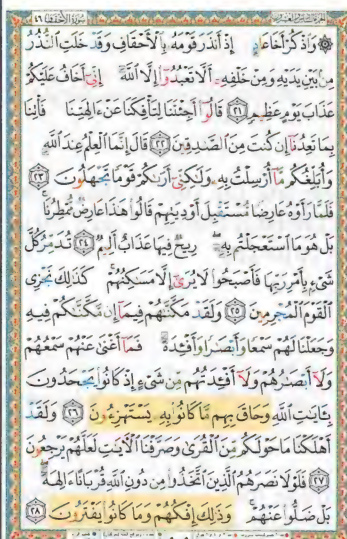 سورة الأحقاف ٤٦
وَاذْكُرْ أَخَا عَادٍ إِذْ أَنذَرَ قَوْمَهُ بِالْأَحْقَافِ وَقَدْ خَلَتِ النُّذُرُ
مِن بَيْنِ يَدَيْهِ وَمِنْ خَلْفِهِ أَلَّا تَعْبُدُوا إِلَّا اللَّهَ إِنِّي أَخَافُ عَلَيْكُمْ
عَذَابَ يَوْمٍ عَظِيمٍ ٢١ قَالُوا أَجِئْتَنَا لِتَأْفِكَنَا عَنْ آلِهَتِنَا فَأْتِنَا
بِمَا تَعِدُنَا إِن كُنتَ مِنَ الصَّادِقِينَ ٢٢ قَالَ إِنَّمَا الْعِلْمُ عِندَ اللَّهِ
وَأُبَلِّغُكُم مَّا أُرْسِلْتُ بِهِ وَلَٰكِنِّي أَرَاكُمْ قَوْمًا تَجْهَلُونَ ٢٣
فَلَمَّا رَأَوْهُ عَارِضًا مُّسْتَقْبِلَ أَوْدِيَتِهِمْ قَالُوا هَٰذَا عَارِضٌ مُّمْطِرُنَا
بَلْ هُوَ مَا اسْتَعْجَلْتُم بِهِ رِيحٌ فِيهَا عَذَابٌ أَلِيمٌ ٢٤ تُدَمِّرُ كُلَّ
شَيْءٍ بِأَمْرِ رَبِّهَا فَأَصْبَحُوا لَا يُرَىٰ إِلَّا مَسَاكِنُهُمْ كَذَٰلِكَ نَجْزِي
الْقَوْمَ الْمُجْرِمِينَ ٢٥ وَلَقَدْ مَكَّنَّاهُمْ فِيمَا إِن مَّكَّنَّاكُمْ فِيهِ
وَجَعَلْنَا لَهُمْ سَمْعًا وَأَبْصَارًا وَأَفْئِدَةً فَمَا أَغْنَىٰ عَنْهُمْ سَمْعُهُمْ
وَلَا أَبْصَارُهُمْ وَلَا أَفْئِدَتُهُم مِّن شَيْءٍ إِذْ كَانُوا يَجْحَدُونَ
بِآيَاتِ اللَّهِ وَحَاقَ بِهِم مَّا كَانُوا بِهِ يَسْتَهْزِئُونَ ٢٦ وَلَقَدْ
أَهْلَكْنَا مَا حَوْلَكُم مِّنَ الْقُرَىٰ وَصَرَّفْنَا الْآيَاتِ لَعَلَّهُمْ يَرْجِعُونَ
٢٧ فَلَوْلَا نَصَرَهُمُ الَّذِينَ اتَّخَذُوا مِن دُونِ اللَّهِ قُرْبَانًا آلِهَةً
بَلْ ضَلُّوا عَنْهُمْ وَذَٰلِكَ إِفْكُهُمْ وَمَا كَانُوا يَفْتَرُونَ ٢٨